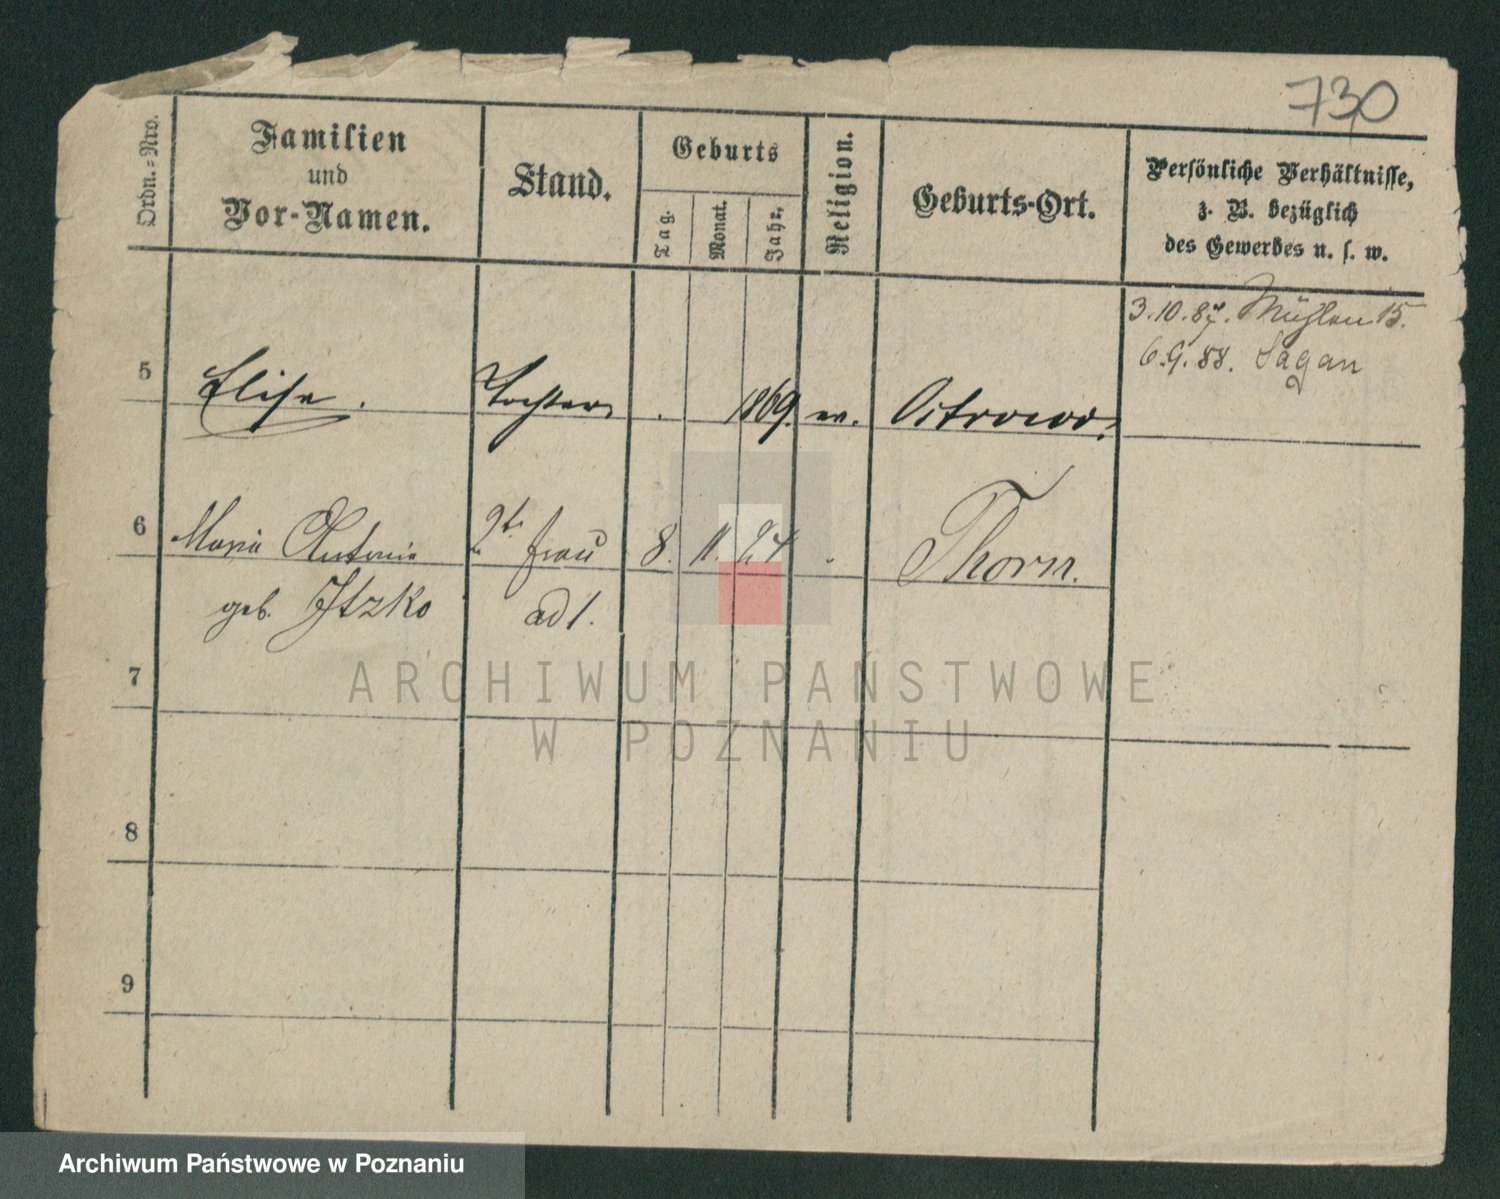 730
Ordn.-Nro.
Familien
und
Vor-Namen.
Stand.
Geburts
Tag.
Monat.
Jahr.
Religion.
Geburts-Ort.
Persönliche Verhältnisse,
z. B. bezüglich
des Gewerbes u. s. w.
3.10.87. Mühlen 15.
6.9.88. Sagan
5 Elise. Tochter 1869. ev. Ostrowo.
6 Maria Antonie Frau 8. 11. 24 Thorn.
geb. Itzko ad 1.
7
8
9
ARCHIWUM PAŃSTWOWE
W POZNANIU
Archiwum Państwowe w Poznaniu